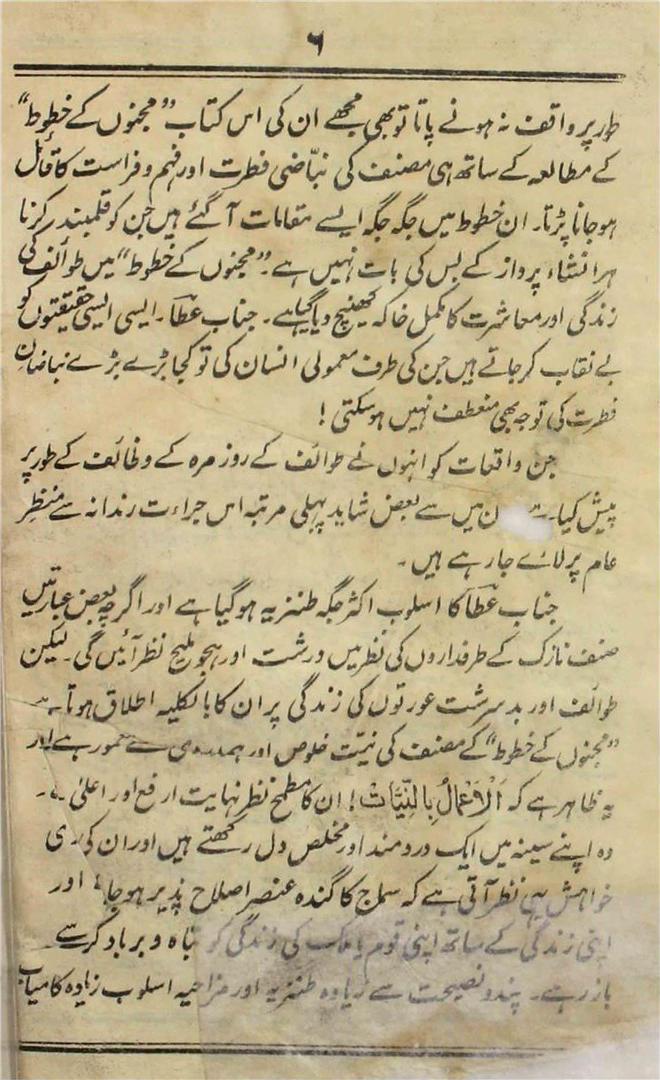 ۶
طور پر واقف نہ ہونے پاتا تو بھی مجھے ان کی اس کتاب ”مجنوں کے خطوط“
کے مطالعہ کے ساتھ ہی مصنف کی نبّاضی فطرت اور فہم و فراست کا قائل
ہو جانا پڑتا۔ ان خطوط میں جگہ جگہ ایسے مقامات آ گئے ہیں جن کو قلمبند کرنا
ہر انشاء پرواز کے بس کی بات نہیں ہے۔ ”مجنوں کے خطوط“ میں طوائف کی
زندگی اور معاشرت کا مکمل خاکہ کھینچ دیا گیا ہے۔ جناب عطاؔ۔ ایسی ایسی حقیقتوں کو
بے نقاب کر جاتے ہیں جن کی طرف معمولی انسان کی تو کجا بڑے بڑے نباضانِ
فطرت کی توجہ بھی منعطف نہیں ہو سکتی!
جن واقعات کو انہوں نے طوائف کے روز مرہ کے وظائف کے طور پر
پیش کیا ن میں سے بعض شاید پہلی مرتبہ اس جراءت رندانہ سے منظرِ
عام پر لائے جا رہے ہیں۔
جناب عطاؔ کا اسلوب اکثر جگہ طنزیہ ہو گیا ہے اور اگرچہ بعض عبارتیں
صنف نازک کے طرفداروں کی نظر میں درشت اور ہجو ملیح نظر آئیں گی۔ لیکن
طوائف اور بد سرشت عورتوں کی زندگی پر ان کا بالکلیہ اطلاق ہوتا
”مجنوں کے خطوط“ کے مصنف کی نیت خلوص اور ہمدردی سے معمور ہے اور
یہ ظاہر ہے کہ اَلْاَعْمَالُ بِالنِّیَّات! ان کا مطمح نظر نہایت ارفع اور اعلیٰ
وہ اپنے سینہ میں ایک دردمند اور مخلص دل رکھتے ہیں اور ان کی
خواہش یہی نظر آتی ہے کہ سماج کا گندہ عنصر اصلاح پذیر ہو جائے اور
اپنی زندگی کے ساتھ اپنی قوم یا ملک کی زندگی کو تباہ و برباد کرنے سے
باز رہے۔ پند و نصیحت سے زیادہ طنزیہ اور مزاحیہ اسلوب زیادہ کامیاب